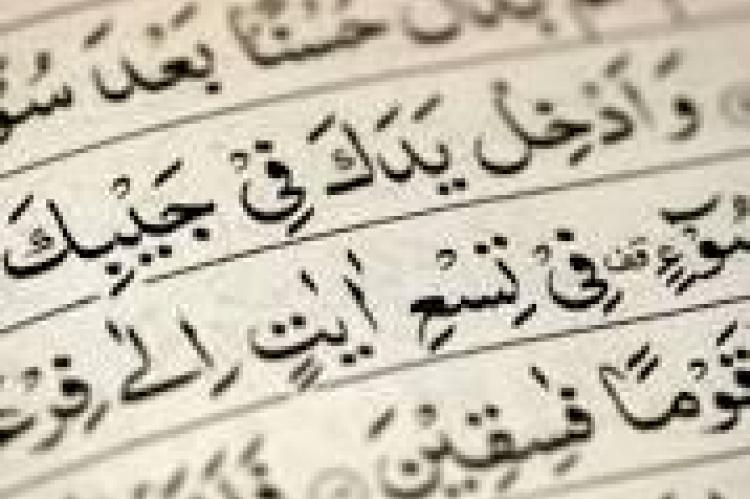 حُسْنًاۢ بَعْدَ
وَاَدْخِلْ يَدَكَ فِيْ جَيْبِكَ
سُوْٓءٍ قف فِيْ تِسْعِ اٰيٰتٍ اِلٰى فِرْعَ
قَوْمًا فٰسِقِيْنَ